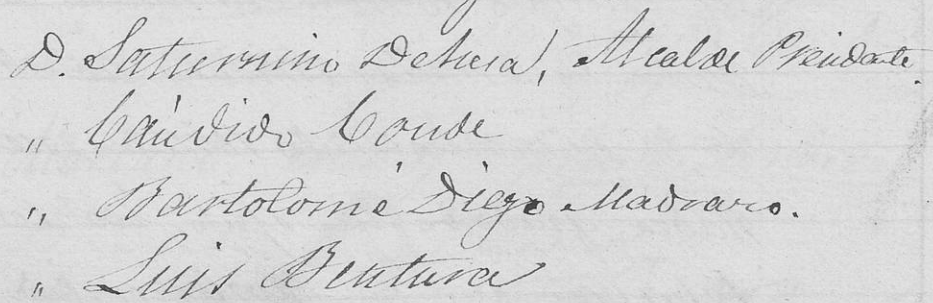 D. Saturnino Dehesa, Alcalde Presidente.
„ Cándido Conde
„ Bartolomé Diego Madrazo.
„ Luis Bentura